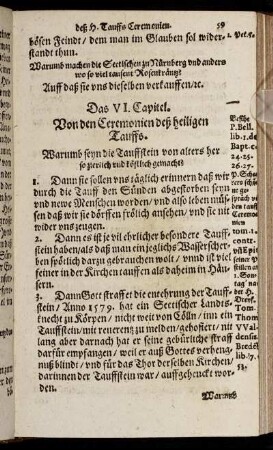 deß H. Tauffs Ceremonien. 59
bösen Feindt / dem man im Glauben sol wider- 1. Pet. 5.
standt thun.
Warumb machen die Sectischen zu Nürnberg vnd anders
wo so viel tausent Rosenkräntz?
Auff daß sie vns dieselben verkauffen / ꝛc.
Das VI. Capitel.
Von den Ceremonien deß heiligen
Tauffs.
Warumb seyn die Tauffstein von alters her
so zierlich vnd köstlich gemacht?
1. Dann sie sollen vns täglich erinnern daß wir
durch die Tauff den Sünden abgestorben seyn
vnd newe Menschen worden / vnd also leben müs-
sen daß wir sie dörffen frölich ansehen / vnd sie nit
wider vns zeugen.
2. Dann es ist je vil ehrlicher besondere Tauff-
stein haben / als daß man ein jegliches Wasserscher-
ben spötlich darzu gebrauchen wolt / wie es vil löb-
licher in der Kirchen tauffen als daheim in Häu-
sern.
3. Dann Gott straffet die entehrung der Tauff-
stein / Anno 1579. hat ein Sectischer Lands-
knecht zu Körpen / nicht weit von Cölln / inn ein
Tauffstein / mit reuerentz zu melden / gehofiert / nit
lang aber darnach hat er seine gebürliche straff
darfür empfangen / weil er auß Gottes verheng-
nuß blindt / vnd für das Thor derselben Kirchen /
darinnen der Tauffstein war / auffgehenckt wor-
den.
Warumb
P. Bell.
lib. 1. de
Bapt. c.
24. 25.
26. 27.
gespräch
Ceremo-
nien
tom. 1.
seiner P
1. Son-
tag nach
der H.
Tom.
Thom.
VVal-
densis.
lib.